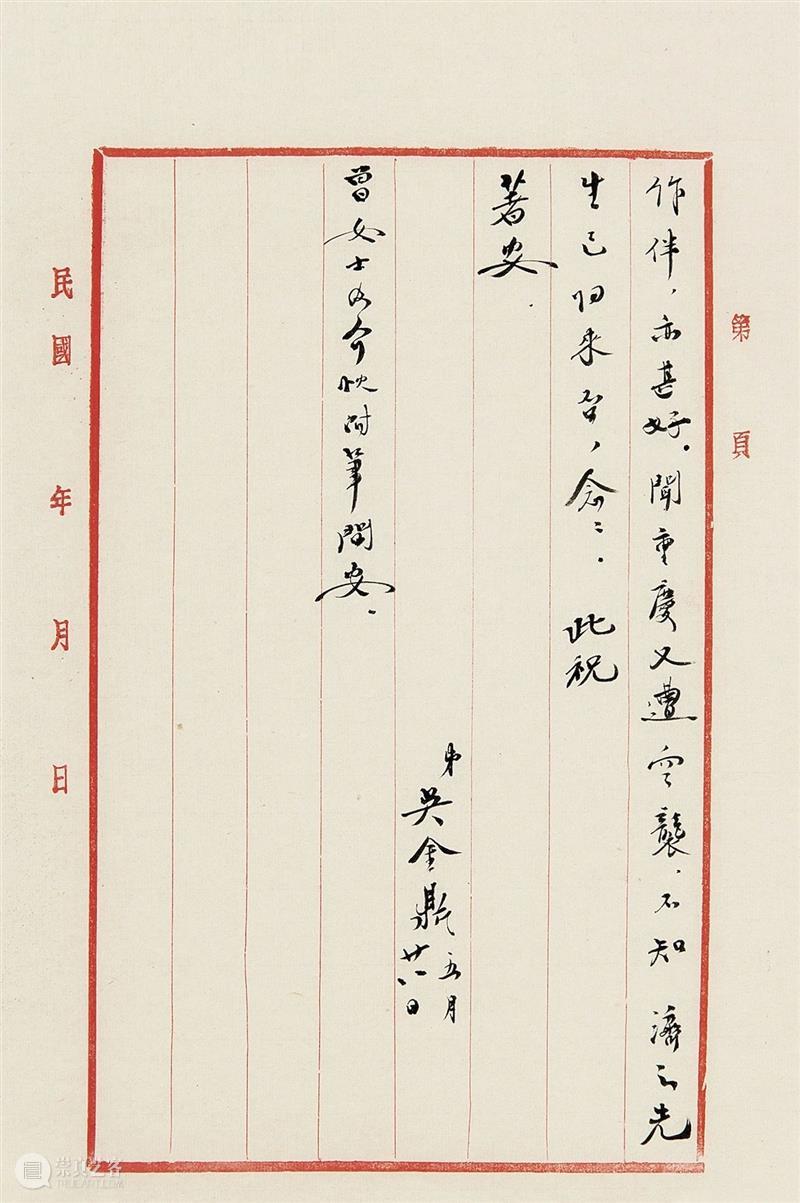 第 頁
作伴，亦甚好。聞重慶又遭空襲，不知 濟之先
生已归来否，念〻。 此祝
著安．
弟吳金鼎 五月廿八日
曾女士及介忱附筆問安．
民國 年 月 日
崇真艺客
TRUEART.COM